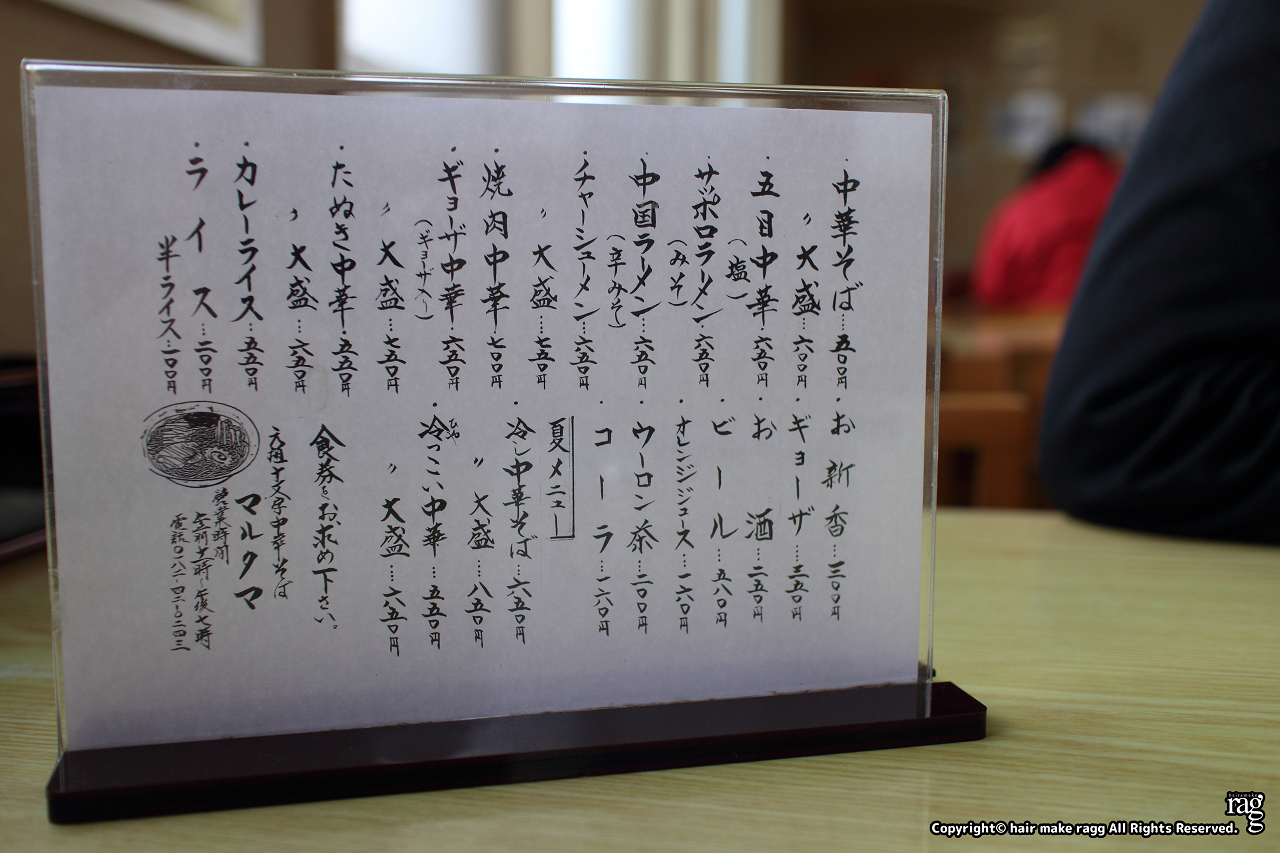 ・中華そば…五〇〇円
〃大盛…六〇〇円
・五目中華…六五〇円
(塩)
・サッポロラーメン…六五〇円
(みそ)
・中国ラーメン…六五〇円
(辛みそ)
・チャーシューメン…六五〇円
〃大盛…七五〇円
・焼肉中華…七〇〇円
・ギョーザ中華…六五〇円
(ギョーザ入り)
〃大盛…七五〇円
・たぬき中華…五五〇円
〃大盛…六五〇円
・カレーライス…五五〇円
・ライス…二〇〇円
半ライス…一〇〇円
・お新香…三〇〇円
・ギョーザ…三五〇円
・お酒…二五〇円
・ビール…五八〇円
・オレンジジュース…一六〇円
・ウーロン茶…二〇〇円
・コーラ…一六〇円
夏メニュー
・冷し中華そば…六五〇円
〃大盛…八五〇円
・冷っこい中華…五五〇円
ひや
〃大盛…六五〇円
食券をお求め下さい。
元祖十文字中華そば
マルタマ
営業時間
午前十一時〜午後七時
電話〇一八二-四二-〇二四三
hairmake
rag
Copyright© hair make ragg All Rights Reserved.